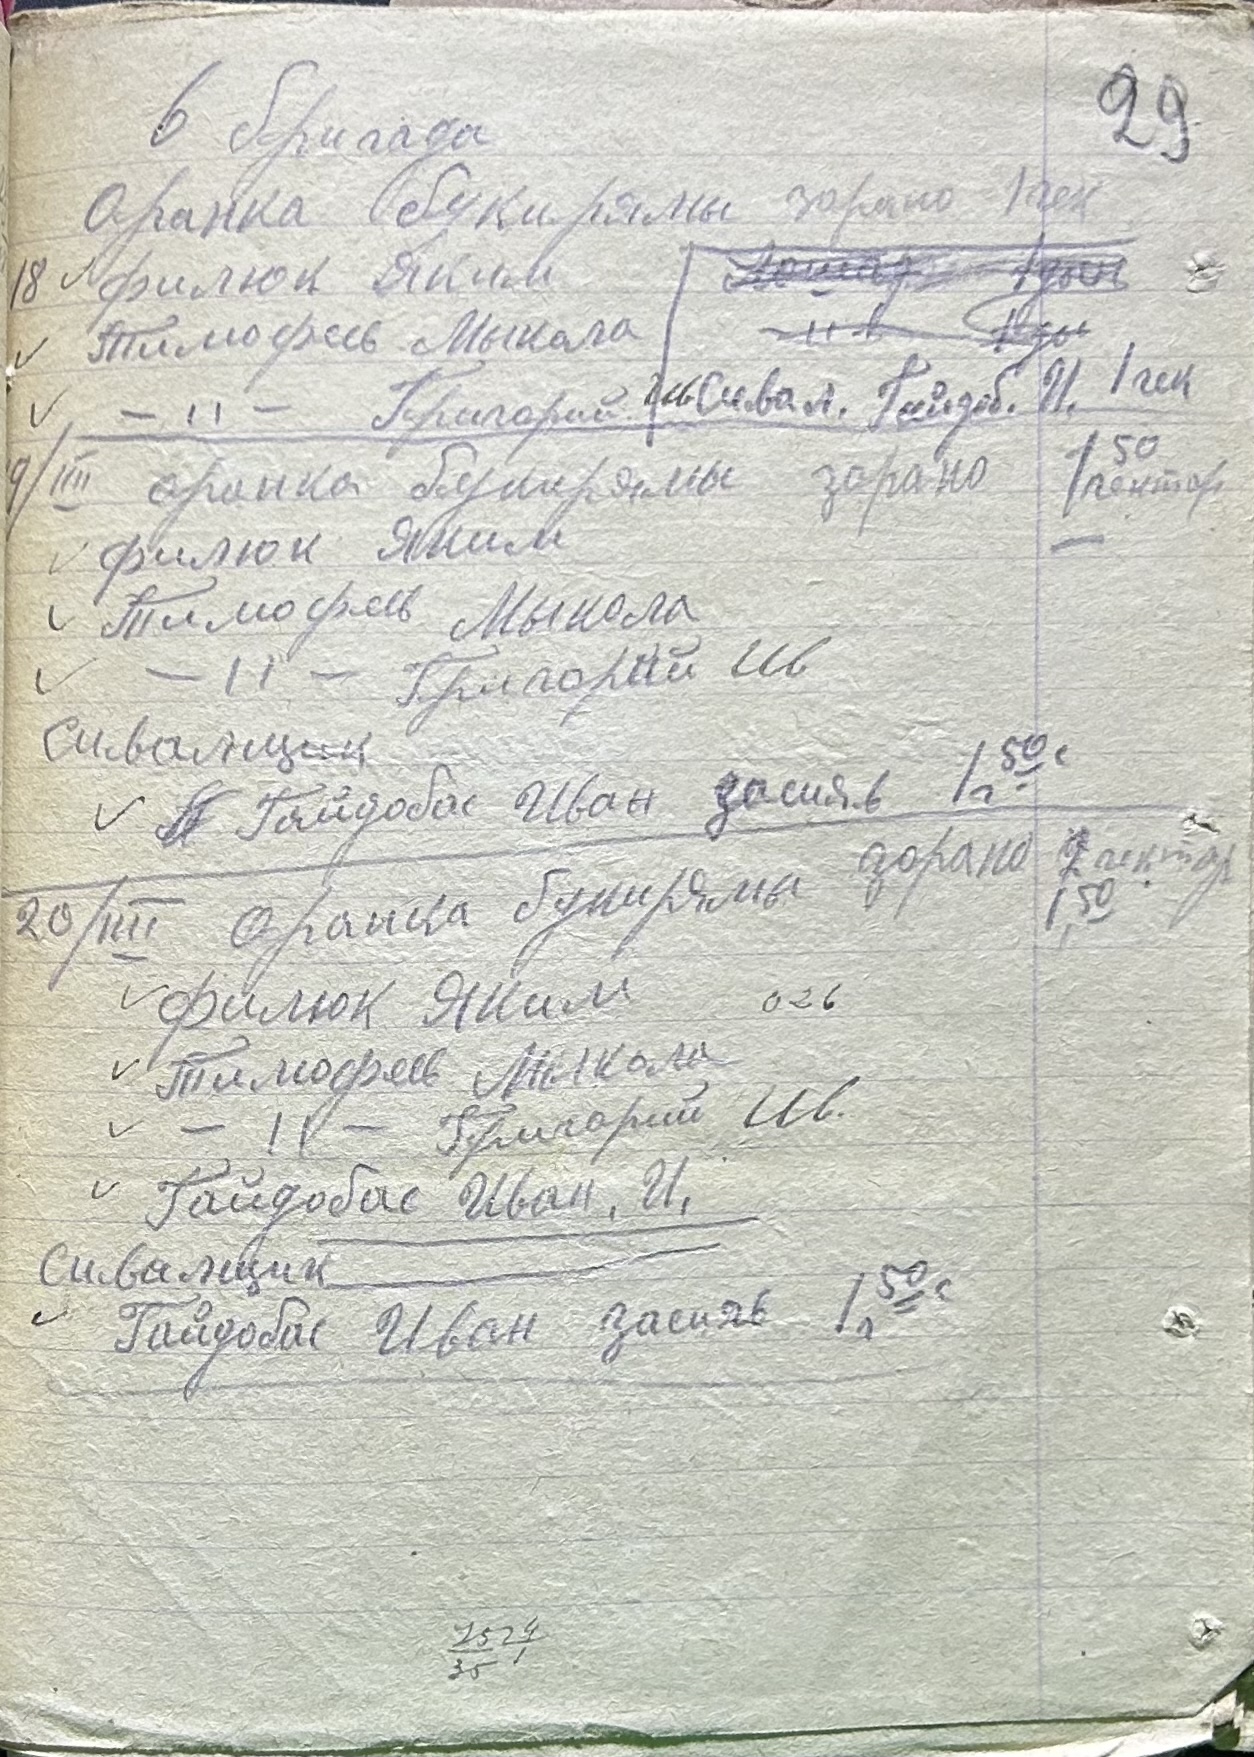 29
6 бригада
Оранка букирямы зорано 1 гек
18 Филюк Яким
Тимофеев Мыкола
— ІІ — Григорий Ив Сивал. Гайдоб. И. 1 гек
9/III оранка букирямы зорано 1 50 гектар
Филюк Яким
Тимофеев Мыкола
— ІІ — Григорий Ив
Сивалщик
Гайдобас Иван засияв 1 50 г.
20/III Оранка букирямы зорано гектар
1,50
Филюк Яким 026
Тимофеев Мыкола
— ІІ — Григорий Ив.
Гайдобас Иван, И,
Сивалщик
Гайдобас Иван засияв 1 50 г